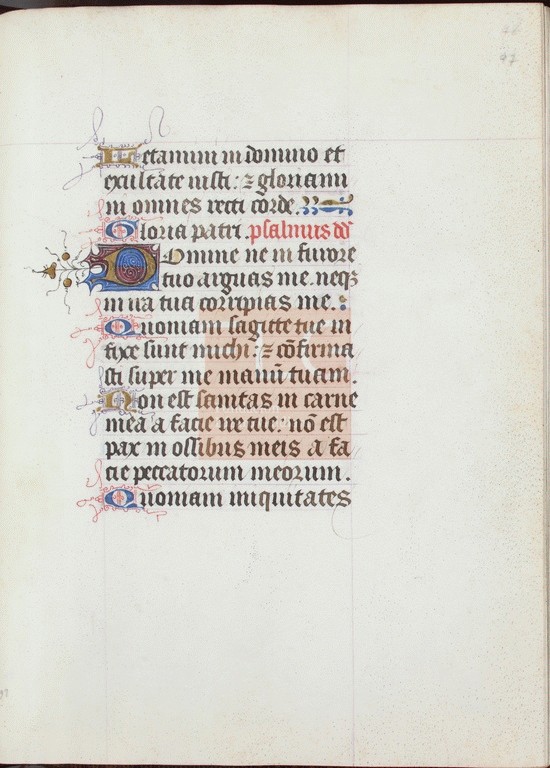 47
Letamini in domino et
exultate iusti: ⁊ gloriami
ni omnes recti corde.
Gloria patri. psalmus dd
Domine ne in furore
tuo arguas me neqꝫ
in ira tua corripias me.
Quoniam sagitte tue in
fixe sunt michi: ⁊ cōfirma
sti super me manū tuam.
Non est sanitas in carne
mea a facie ire tue: nō est
pax in ossibus meis a fa
cie peccatorum meorum.
Quoniam iniquitates